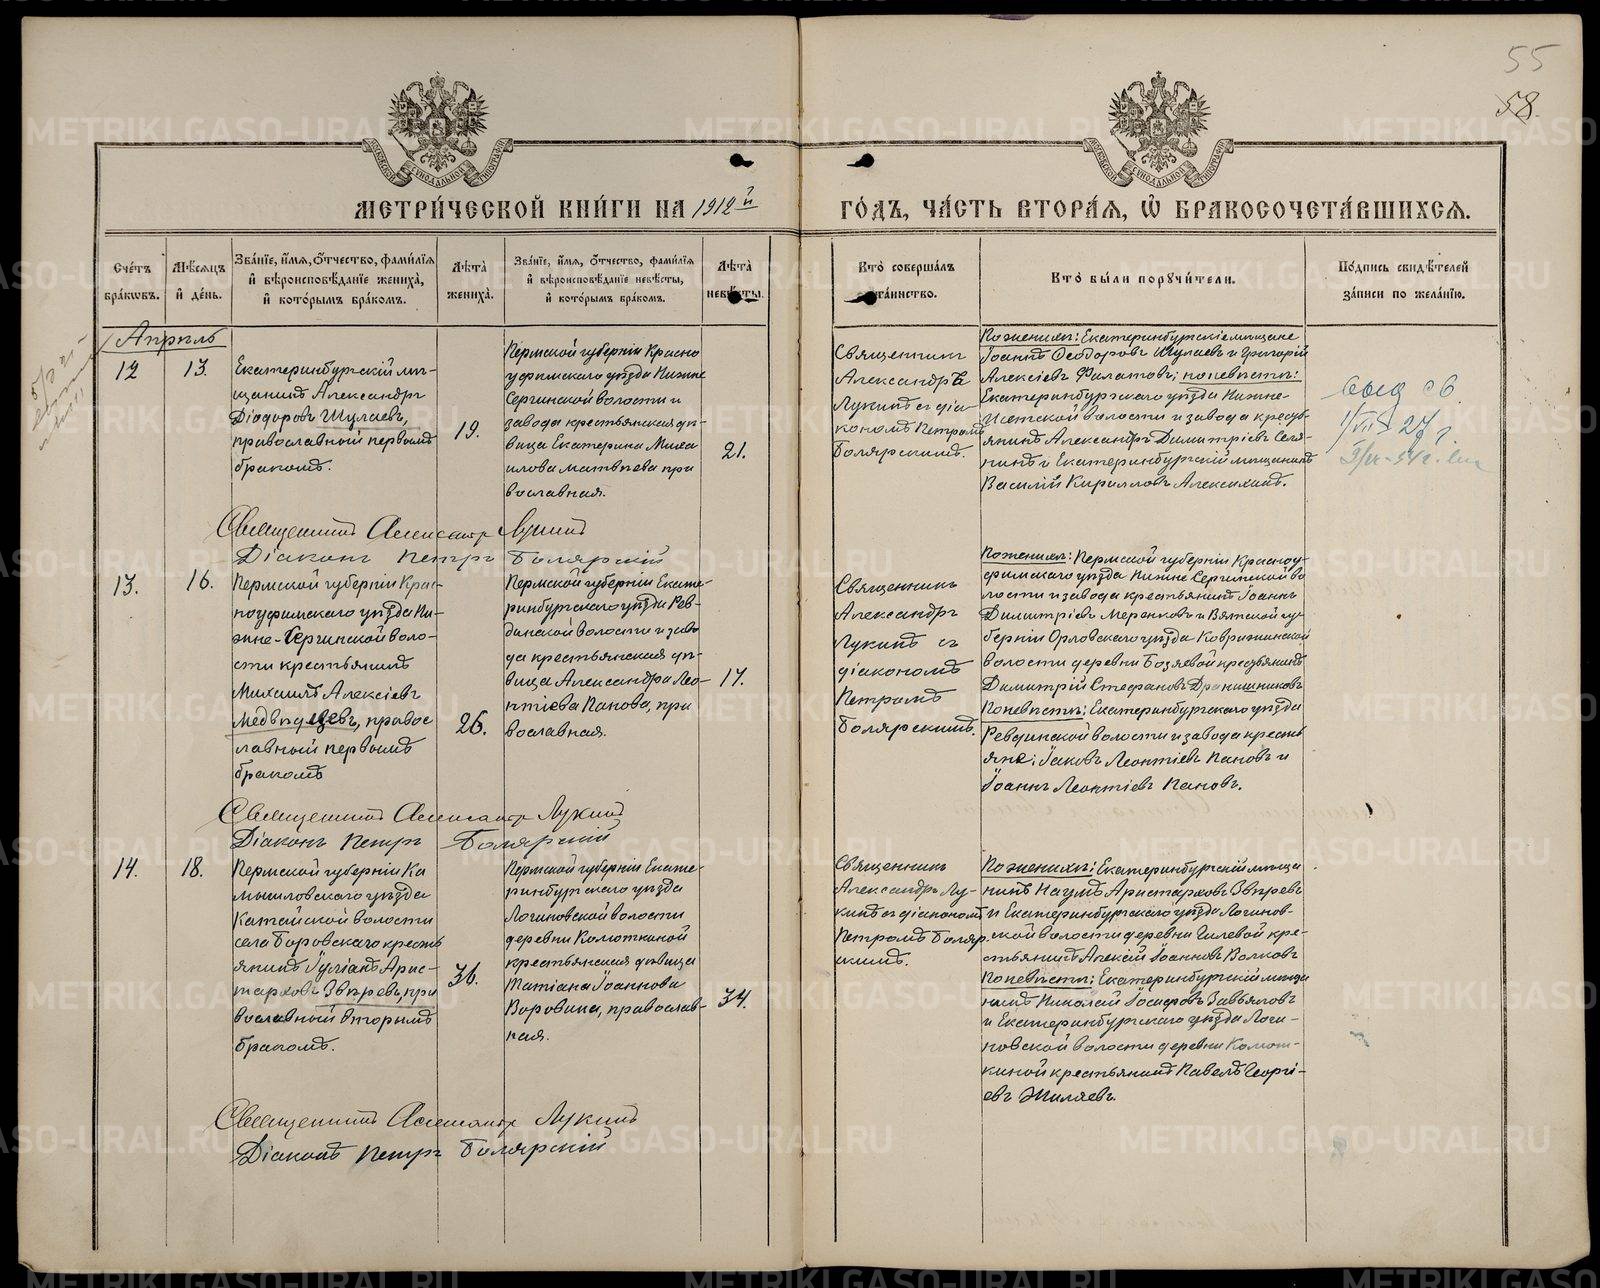 55
58.
МЕТРИ́ЧЕСКОЙ КНИ́ГИ НА 1912й
ГО́ДЪ, ЧА́СТЬ ВТОРА́Я, Ѡ БРАКОСОЧЕТА́ВШИХСЯ.
Сче́тъ бра́кѡвъ.
Мѣ́сяцъ и де́нь.
Зва́нїе, и́мя, о́тчество, фами́лїя и вѣроисповѣ́данїе жениха̀, и кото́рымъ бра́комъ.
Лѣ́та жениха̀.
Зва́нїе, и́мя, о́тчество, фами́лїя и вѣроисповѣ́данїе невѣ́сты, и кото́рымъ бра́комъ.
Лѣ́та невѣ́сты.
Кто̀ соверша́лъ таинство.
Кто̀ бы́ли поручи́тели.
По́дпись свидѣ́телей за́писи по жела́нїю.
Апрѣль
12
13.
Екатеринбургскій мѣ-
щанинъ Александръ
Діодоровъ Шулаевъ,
православный первымъ
бракомъ.
19.
Пермской губерніи Красно
уфимскаго уѣзда Нижне
Сергинской волости и
завода крестьянская дѣ-
вица Екатерина Миха
илова Матвѣева пра
вославная.
21.
Священникъ
Александръ
Лукинъ съ діа-
кономъ Петромъ
Болярскимъ.
По женихѣ: Екатеринбургскіе мѣщане
Іоаннъ Ѳеодоровъ Шулаевъ и Григорій
Алексіевъ Филатовъ; по невѣстѣ:
Екатеринбургскаго уѣзда Нижне-
Исетской волости и завода кресть
янинъ Александръ Димитріевъ Селя-
нинъ и Екатеринбургскій мѣщанинъ
Василій Кирилловъ Алексихинъ.
Священникъ Александръ Лукинъ
Діаконъ Петръ Болярскій
13.
16.
Пермской губерніи Крас-
ноуфимскаго уѣзда Ни-
жне-Сергинской воло-
сти крестьянинъ
Михаилъ Алексіевъ
Медвѣдцевъ, правос
лавный первымъ
бракомъ
26.
Пермской губерніи Екате-
ринбургскаго уѣзда Рев-
динской волости и заво
да крестьянская дѣ-
вица Александра Лео-
нтіева Панова, пра
вославная.
17.
Священникъ
Александръ
Лукинъ съ
діакономъ
Петромъ
Болярскимъ.
По женихѣ: Пермской губерніи Красноу-
фимскаго уѣзда Нижне Сергинской во
лости и завода крестьянинъ Іоаннъ
Димитріевъ Меренковъ и Вятской гу-
берніи Орловскаго уѣзда Ковригинской
волости деревни Бозяевой крестьянинъ
Димитрій Стефановъ Дранишниковъ
По невѣстѣ: Екатеринбургскаго уѣзда
Ревдинской волости и завода кресть
яне: Іаковъ Леонтіевъ Пановъ и
Іоаннъ Леонтіевъ Пановъ.
Священникъ Александръ Лукинъ
Діаконъ Петръ Болярскій
14.
18.
Пермской губерніи Ка
мышловскаго уѣзда
Катайской волости
села Боровскаго кресть
янинъ Іуліанъ Арис-
тарховъ Звѣревъ, пра
вославный вторымъ
бракомъ.
36.
Пермской губерніи Екате-
ринбургскаго уѣзда
Логиновской волости
деревни Колюткиной
крестьянская дѣвица
Татіана Іоаннова
Воровина, православ-
ная.
34
Священникъ
Александръ Лу-
кинъ съ діакономъ
Петромъ Боляр-
скимъ.
По женихѣ: Екатеринбургскій мѣща
нинъ Наумъ Аристарховъ Звѣревъ
и Екатеринбургскаго уѣзда Логинов-
ской волости деревни Гилевой кре-
стьянинъ Алексій Іоанновъ Волковъ
По невѣстѣ: Екатеринбургскій мѣща
нинъ Николай Іосифовъ Завьяловъ
и Екатеринбургскаго уѣзда Логи-
новской волости деревни Колют-
киной крестьянинъ Павелъ Георгі-
евъ Жиляевъ.
Священникъ Александръ Лукинъ
Діаконъ Петръ Болярскій
METRIKI.GASO-URAL.RU